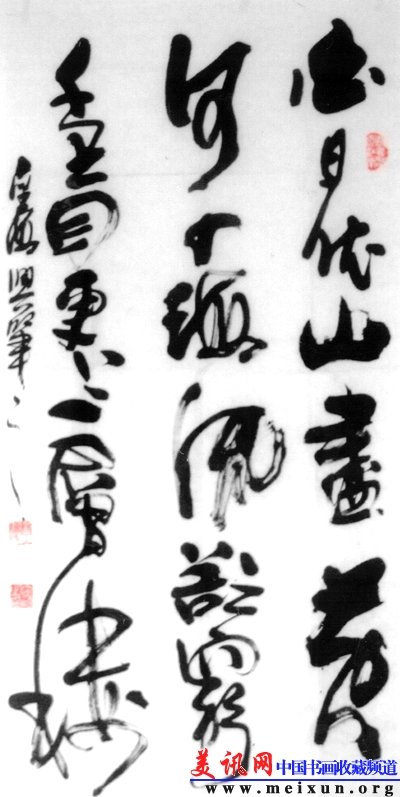 白日依山盡黄
河入海流欲窮
千里目更上一層樓
美讯网中国书画收藏频道
www.meixun.org